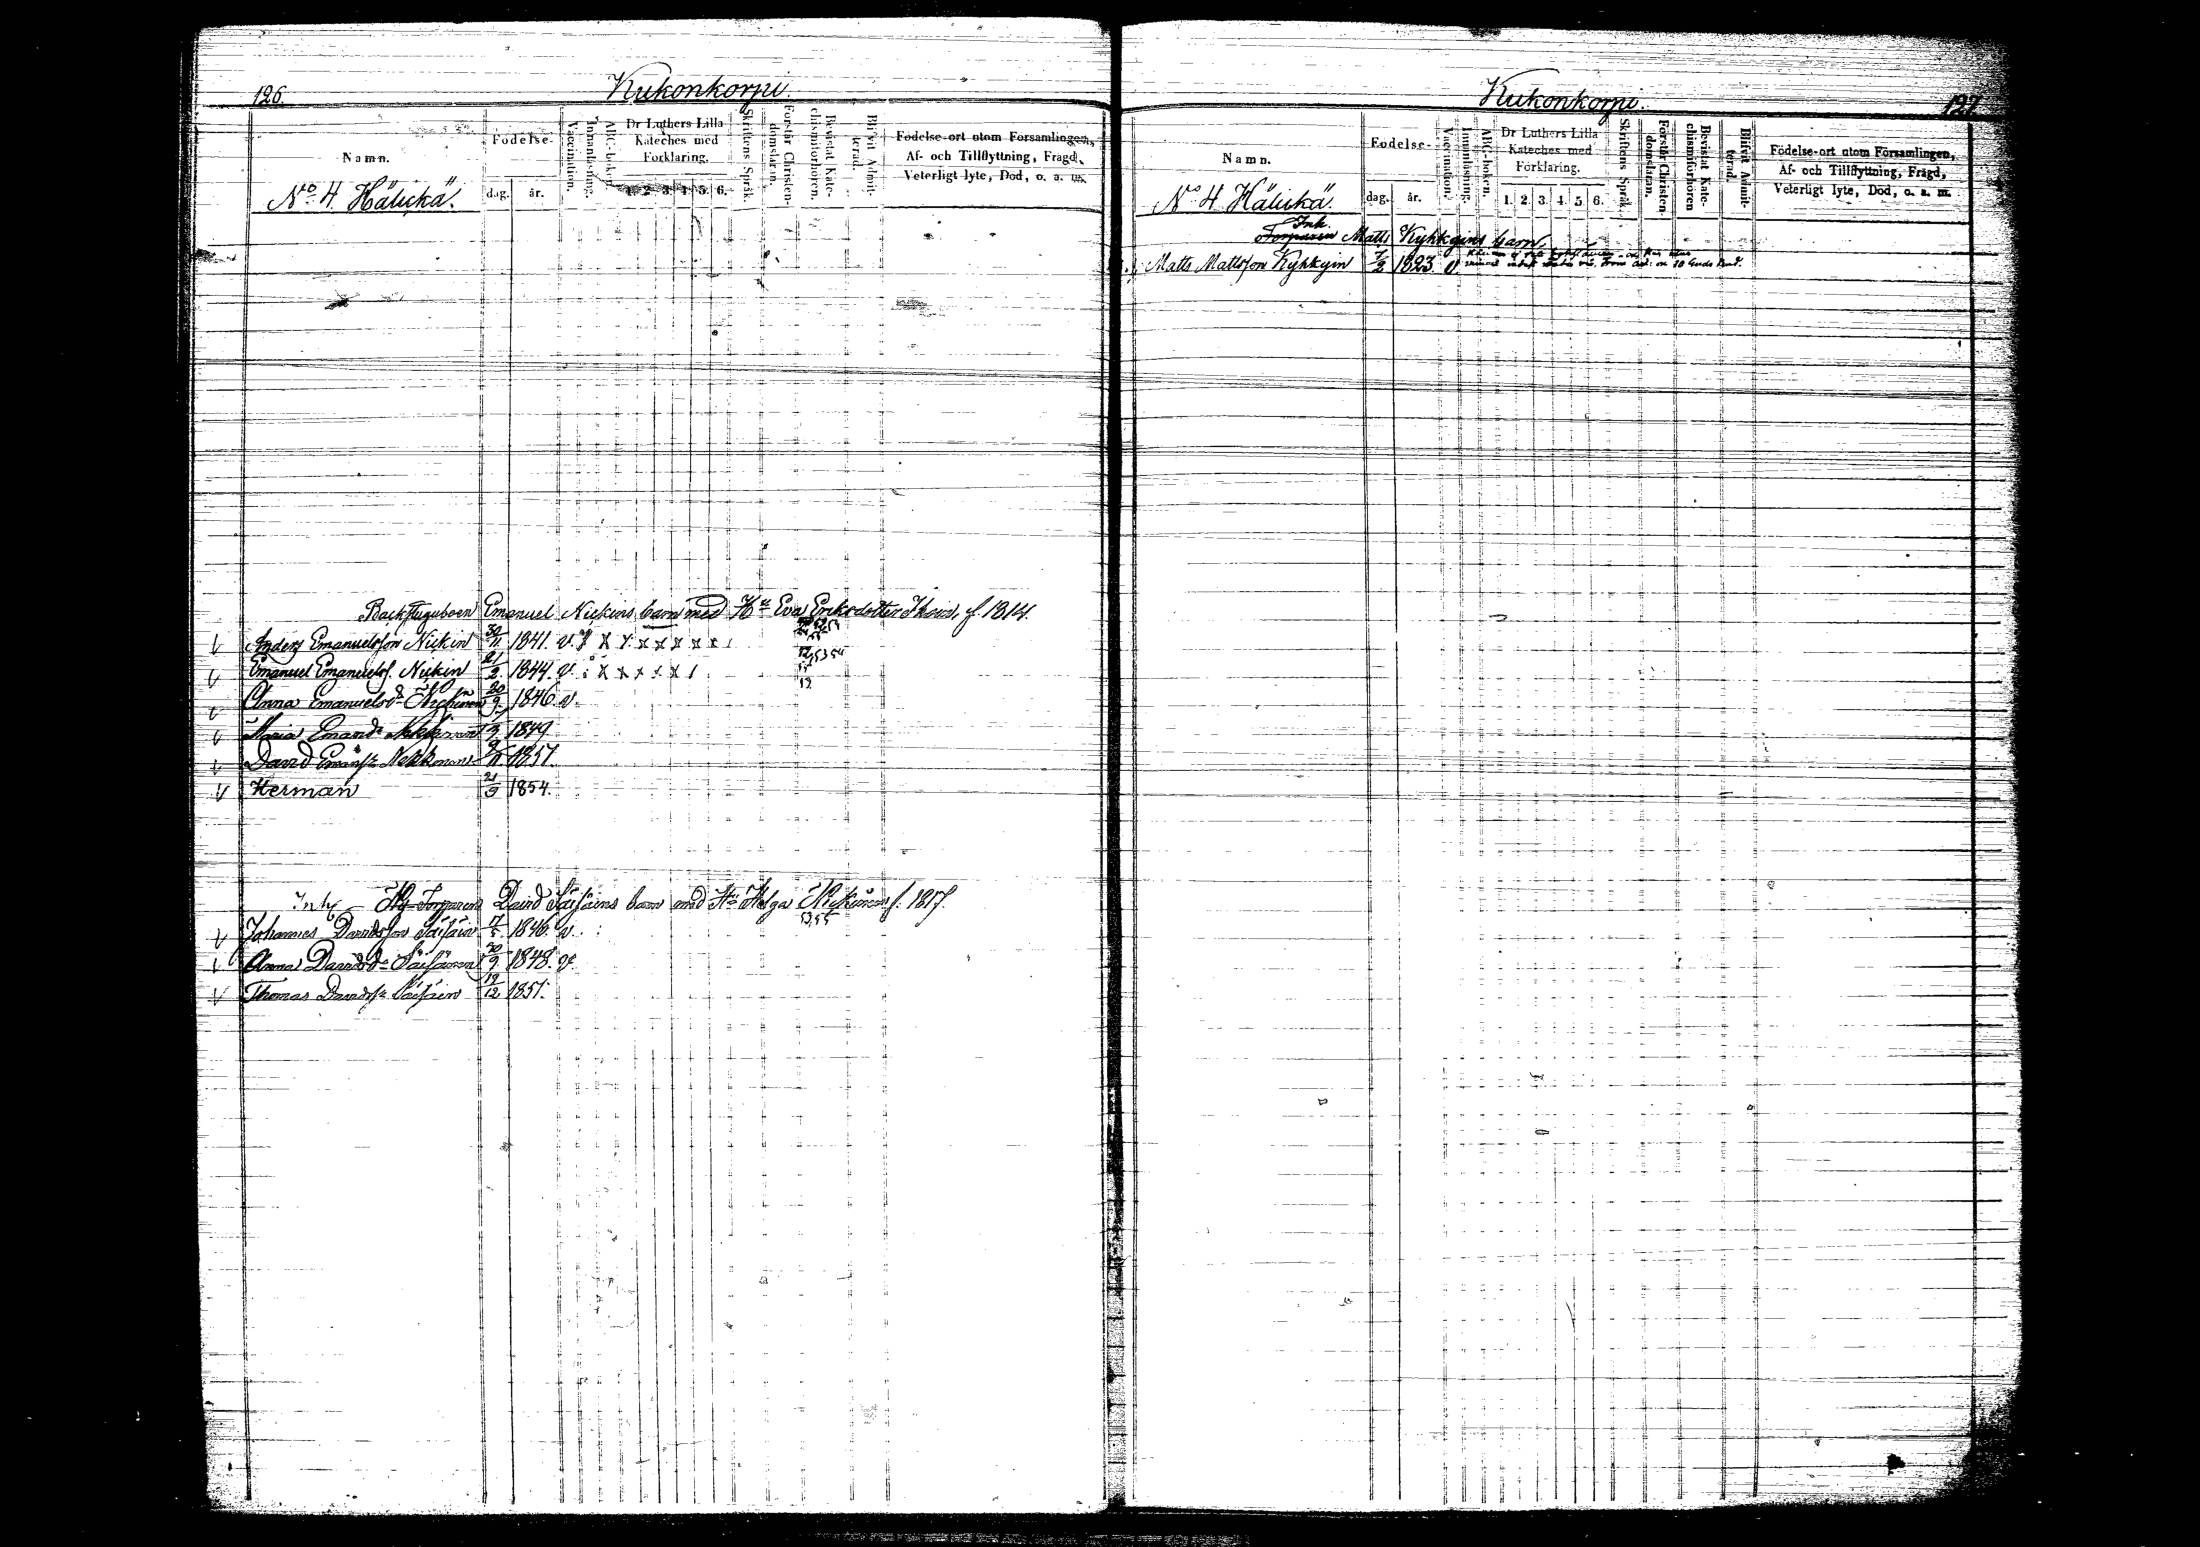 126.
Kukonkorpi.
Namn.
Födelse-
dag.
år.
Vaccination.
Innanläsning.
ABC-boken.
Dr Luthers Lilla
Kateches med
Förklaring.
1. 2. 3. 4. 5. 6.
Skriftens Språk.
Förstår Christen-
domsläran.
Bevistat Kate-
chismiförhören.
Blifvit Admit-
terad.
Födelse-ort utom Församlingen,
Af- och Tillflyttning, Frägd,
Veterligt lyte, Död, o. a. m.
No 4 Häiickä.
Backstuguboen Emanuel Nickins barn med Hu Eva Eriksdotter f. 1814.
v Anders Emanuelsson Nickin 30/11 1841. v. X X X x x x x x
v Emanuel Emanuelss. Nickin 21/2 1844. v. X x x x x 53 54
v Anna Emanuelsdr 20/9 1846 v. 12
v Maria Emandr 1849
v David 9/11 1851.
v Herman 21/3 1854.
Inh. Torparens David barn med Hu Helga f. 1817.
53,55
v Johannes Davidsson 17/5 1846. v.
v Anna Davidsdr 20/9 1848. v.
v Thomas 19/12 1851.
Kukonkorpi.
127.
Namn.
Födelse-
dag.
år.
Vaccination.
Innanläsning.
ABC-boken.
Dr Luthers Lilla
Kateches med
Förklaring.
1. 2. 3. 4. 5. 6.
Skriftens Språk.
Förstår Christen-
domsläran.
Bevistat Kate-
chismiförhören
Blifvit Admit-
terad.
Födelse-ort utom Församlingen,
Af- och Tillflyttning, Frägd,
Veterligt lyte, Död, o. a. m.
No 4 Häiickä.
Inh.
Torparen Matts Kyhkyins barn
Matts Mattsson Kyhkyin 7/2 1823. v.
10 Guds Bud.